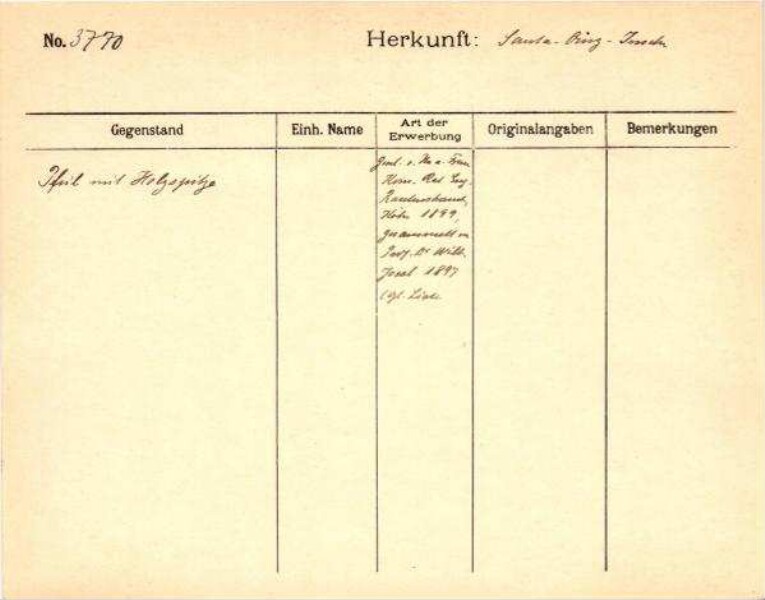 No. 3770
Herkunft: Santa-Cruz-Inseln
Gegenstand
Einh. Name
Art der Erwerbung
Originalangaben
Bemerkungen
Pfeil mit Holzspitze
Gesch. v. Hrn u. Frau
Kom. Rat Eug.
Rautenstrauch,
Köln 1899,
gesammelt von
Prof. Dr Wilh.
Joest 1897